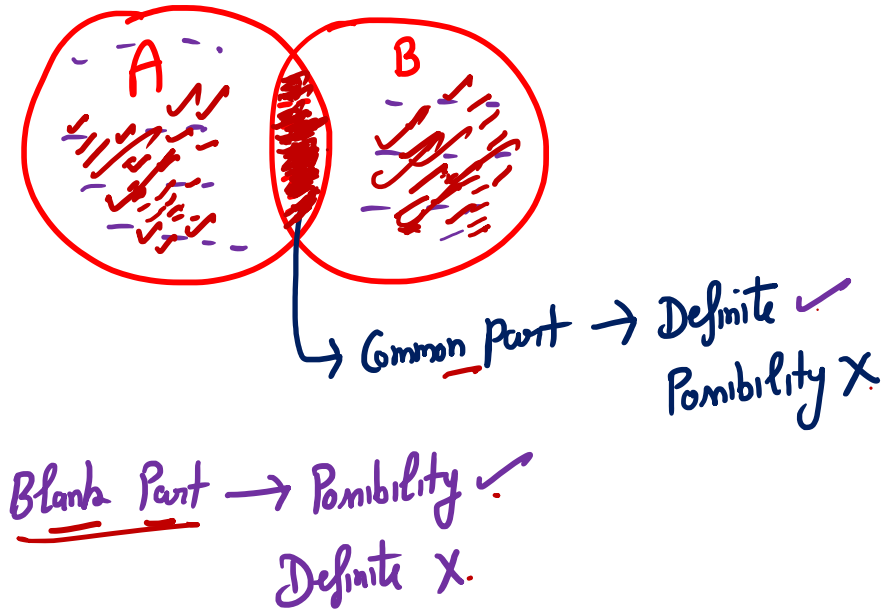 A B
Common Part → Definite ✓
Possibility X
Blank Part → Possibility ✓
Definite X